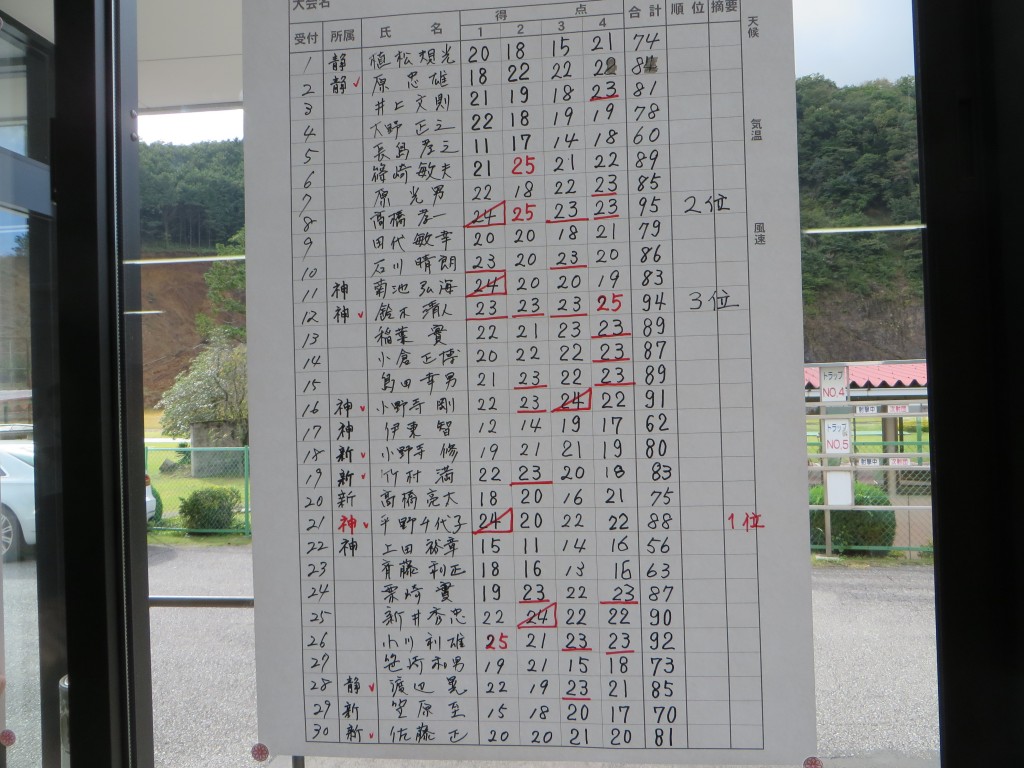 大会名
受付 所属 氏 名 得 点 1 2 3 4 合計 順位 摘要
1 静 植松 20 18 15 21 74
2 静 原 忠雄 18 22 22 22 84
3 井上文則 21 19 18 23 81
4 大野正之 22 18 19 19 78
5 長島孝之 11 17 14 18 60
6 篠崎敏夫 21 25 21 22 89
7 原 光男 22 18 22 23 85
8 髙橋孝一 24 25 23 23 95 2位
9 田代敏幸 20 20 18 21 79
10 石川晴朗 23 20 23 20 86
11 神 菊池弘海 24 20 20 19 83
12 神 鈴木清人 23 23 23 25 94 3位
13 稲葉 實 22 21 23 23 89
14 小倉正博 20 22 22 23 87
15 島田幸男 21 23 22 23 89
16 神 小野寺剛 22 23 24 22 91
17 神 伊東 智 12 14 19 17 62
18 新 小野寺修 19 21 21 19 80
19 新 竹村 満 22 23 20 18 83
20 新 髙橋亮太 18 20 16 21 75
21 神 平野千代子 24 20 22 22 88 1位
22 神 上田裕幸 15 11 14 16 56
23 斉藤利正 18 16 13 16 63
24 栗崎 實 19 23 22 23 87
25 新井秀忠 22 24 22 22 90
26 小川利雄 25 21 23 23 92
27 笹崎和男 19 21 15 18 73
28 静 渡辺 晃 22 19 23 21 85
29 新 笠原 至 15 18 20 17 70
30 新 佐藤 正 20 20 21 20 81
天候
気温
風速
トラップ
NO.4
トラップ
NO.5